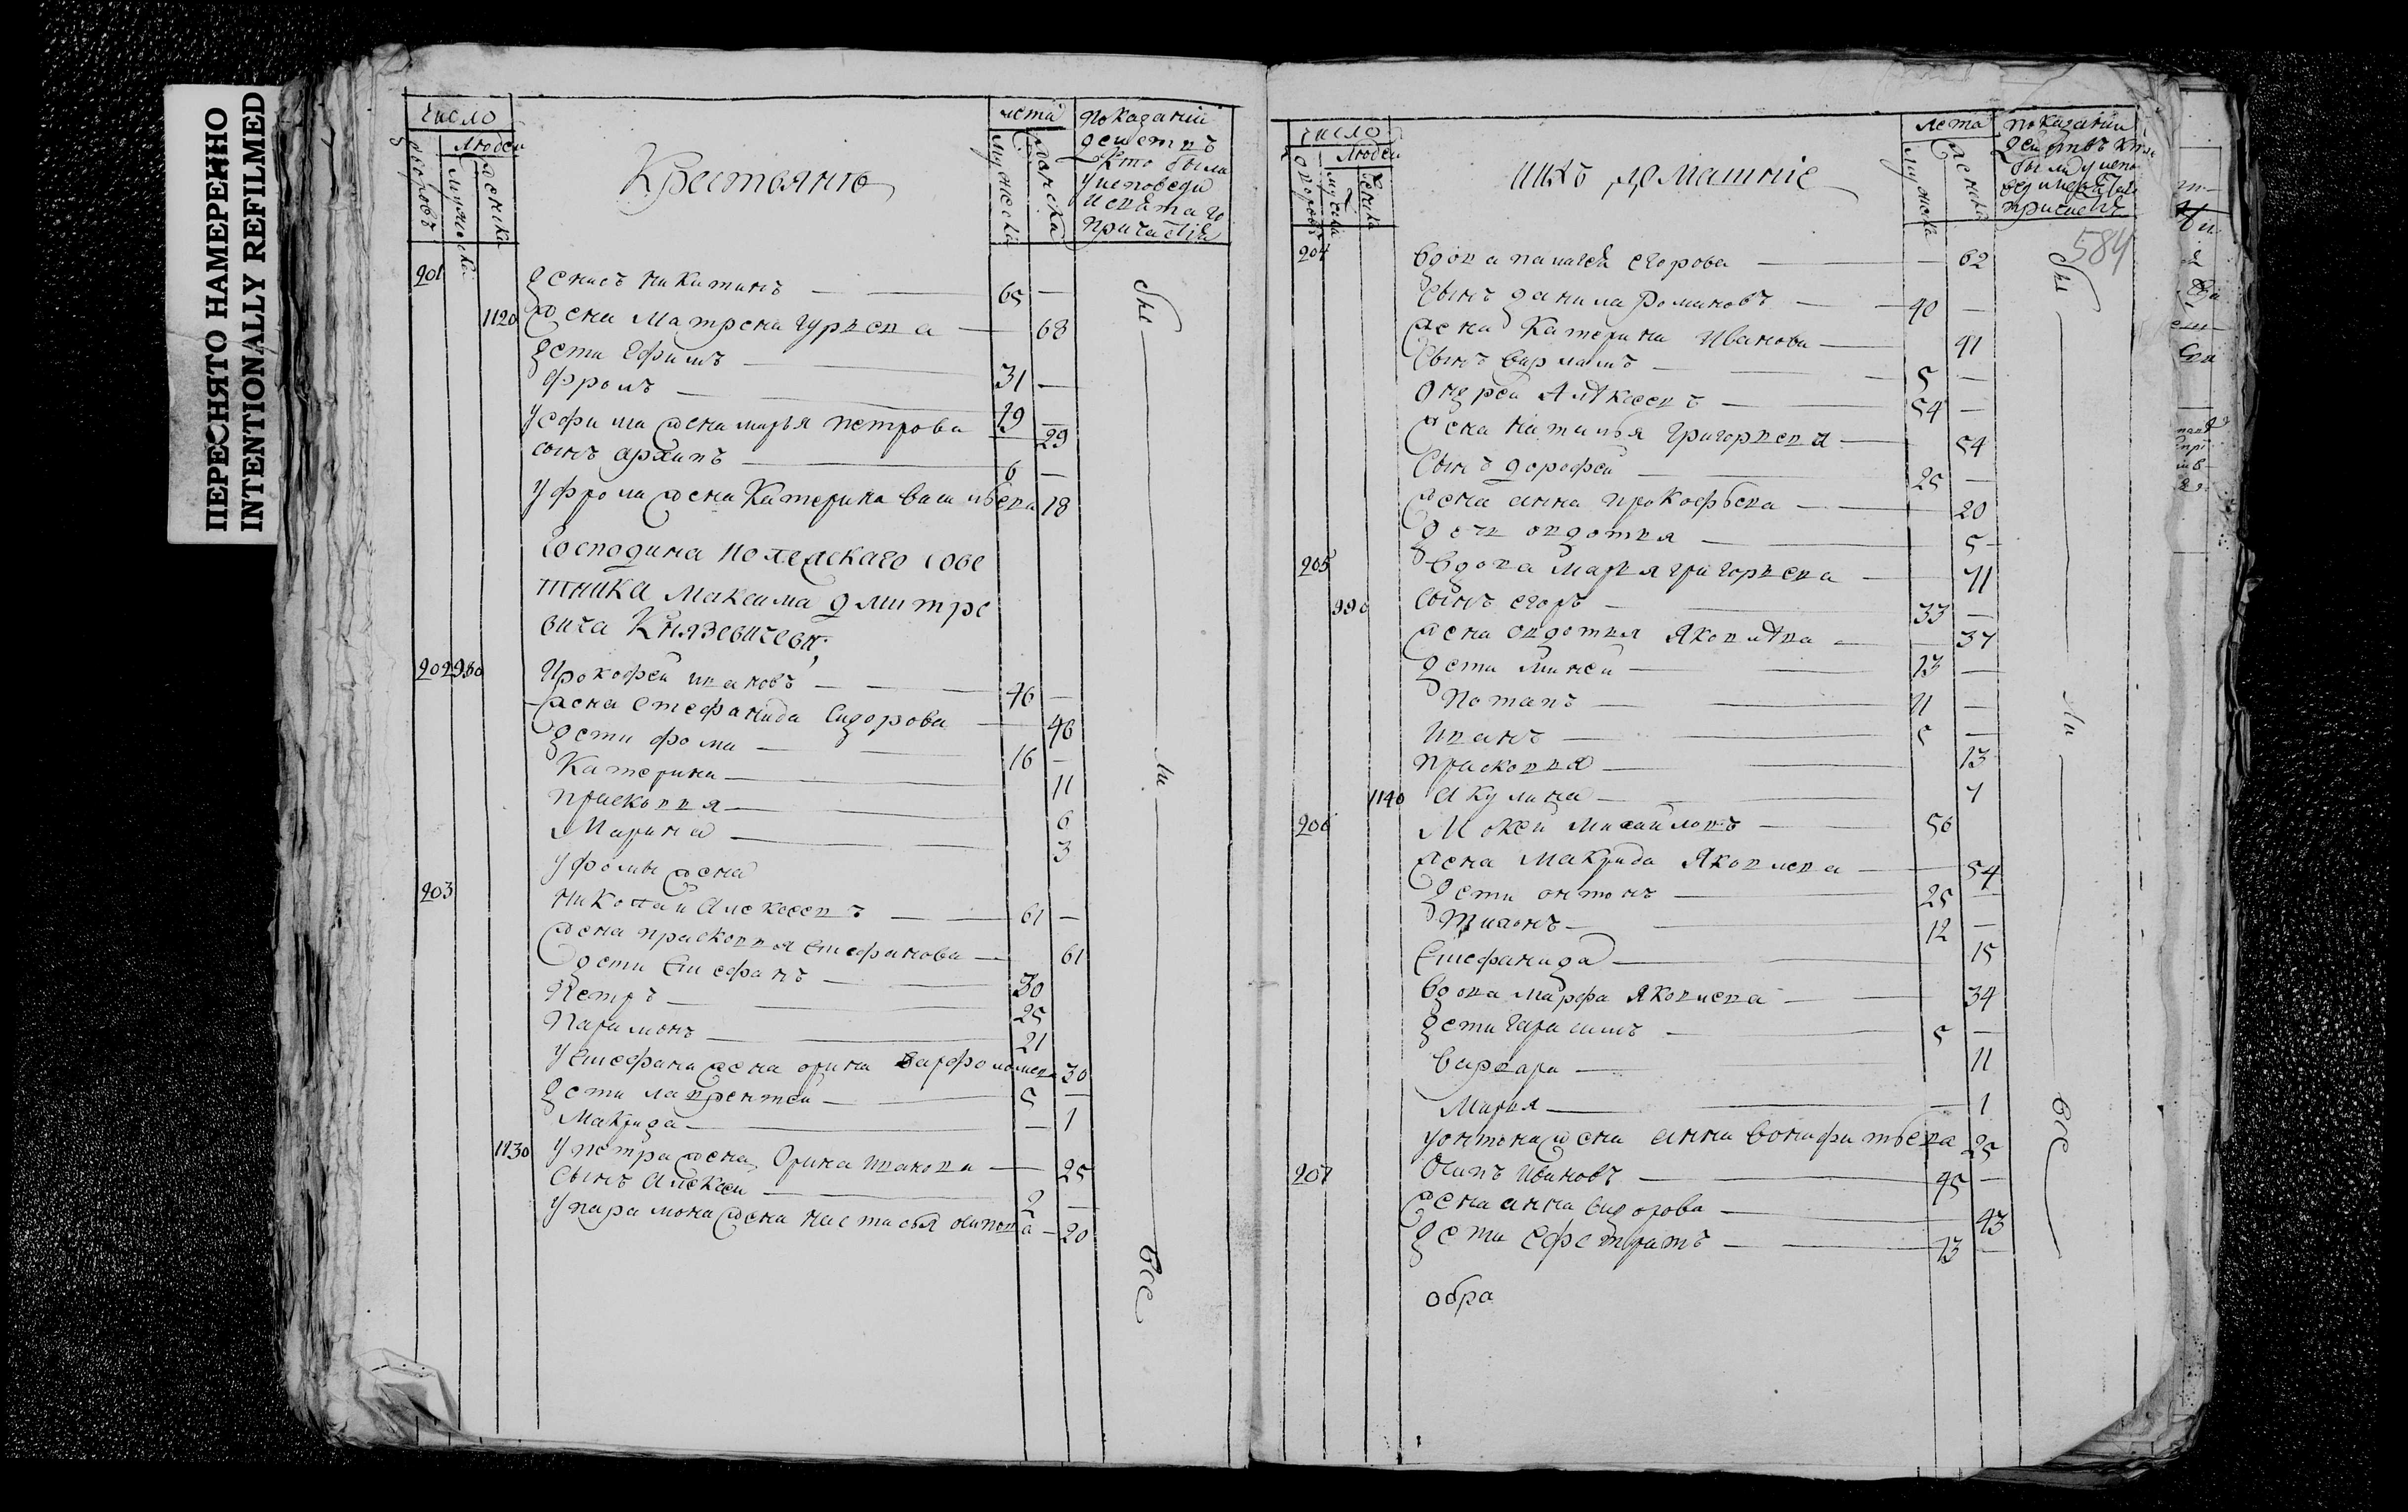 ПЕРЕСНЯТО НАМЕРЕННО
INTENTIONALLY REFILMED
число
людей
дворовъ
мужеска
женска
Крестьянѣ
лета
мужеска
женска
показании
кто были
у исповеди
и святаго
причастия
201
Денисъ Никитинъ — 65 —
1120 жена Матрена Гурьева — 68
дети Ефимъ — 31 —
Фролъ — 19 —
у Ефима жена марья петрова — 29
сынъ архипъ — 6 —
у фрола жена Катерина васильева 18
Господина
Максима дмитре
вича Князевичева
202 980 Прокофей ивановъ — 46 —
жена Стефанида Сидорова — 46
дети фома — 16 —
Катерина — 11
прасковья — 6
Марина — 3
у фомы жена
203 Николай Алексеевъ — 61 —
жена прасковья Стефанова — 61
дети Стефанъ — 30
Петръ — 25
Парамонъ — 21
у Стефана жена орина Варфоломеева 30
дети лаврентей — 5 —
Макрида — 1
1130 у петра жена Орина иванова — 25
сынъ Алексей — 2 —
у парамона жена настасья осипова — 20
Были
все
число
людей
дворовъ
мужеска
женска
ихъ домашние
лета
мужеска
женска
показании
584
204 вдова пелагея егорова — 62
сынъ данила Романовъ — 40 —
жена Катерина Иванова — 41
сынъ варламъ — 5 —
Андрей Алексеевъ — 54 —
жена наталья григорьева — 54
сынъ дорофей — 25 —
жена анна прокофьева — 20
дочь овдотья — 5
205 вдова марья григорьева — 71
990 сынъ егоръ — 33 —
жена овдотья Яковлева — 37
дети Миней — 13 —
Потапъ — 11 —
Иванъ — 5 —
прасковья — 13
1140 акулина — 7
206 Мокей михайловъ — 56
жена макрида Яковлева — 54
дети онтонъ — 25 —
Тихонъ — 12 —
Стефанида — 15
вдова марфа Яковлева — 34
дети гарасимъ — 5 —
варвара — 11
Марья — 1
у онтона жена анна вонифатьева 25
207 Осипъ Ивановъ — 45 —
жена анна сидорова — 43
дети Ефстратъ — 13 —
обра
все